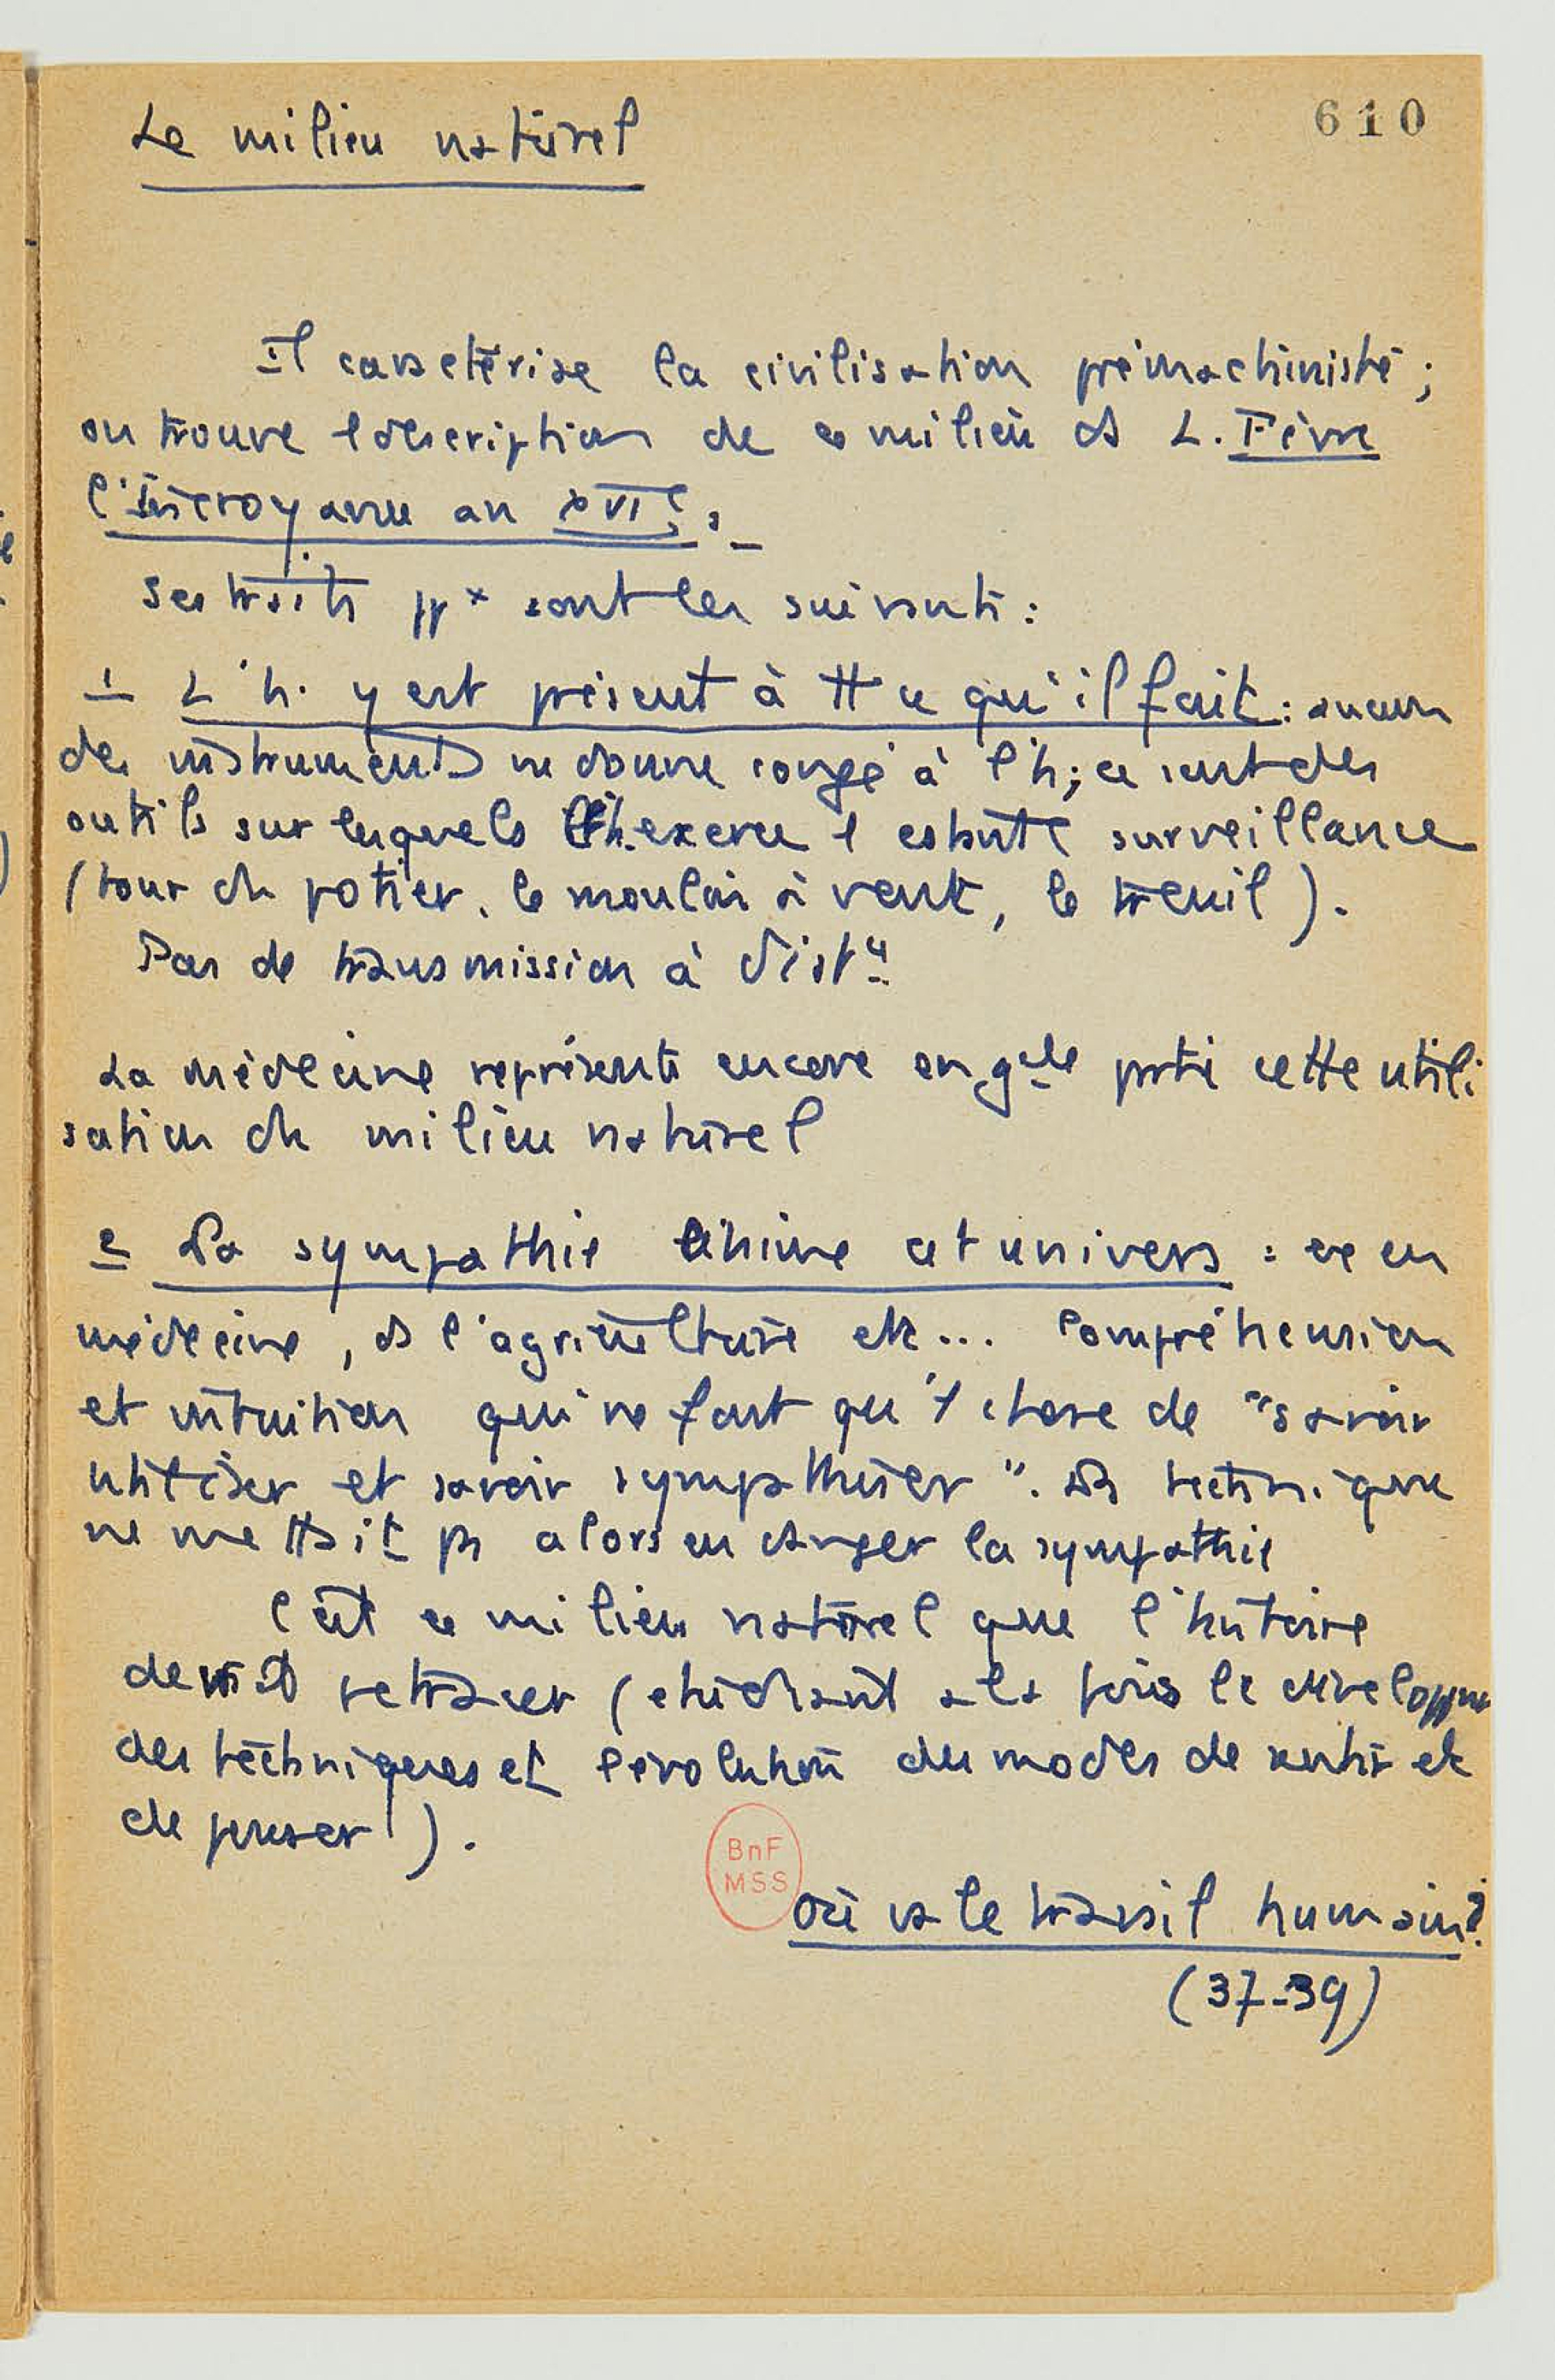 610
Le milieu naturel
Il caractérise la civilisation prémachiniste ;
on trouve 1 description de ce milieu ds L. Fèvre
l'Incroyance au XVIe.
Ses traits ppx sont les suivants :
1 L'h. y est présent à tt ce qu'il fait : aucun
des instruments ne donne congé à l'h ; ce sont des
outils sur lesquels l'h. exerce 1 surveillance
(tour du potier, le moulin à vent, le treuil).
Pas de transmission à distce
La médecine représente encore en gde partie cette utili
sation du milieu naturel
2 La sympathie et univers : ex en
médecine, ds l'agriculture etc... Compréhension
et intuition qui ne font qu'1 chose de "savoir
utiliser et savoir sympathiser". La technique
ne mettait pas alors en danger la sympathie
C'est ce milieu naturel que l'histoire
devrait retracer (étudiant à la fois le développnt
des techniques et l'évolution des modes de sentir et
de penser).
BnF
MSS
Où va le travail humain?
(37-39)